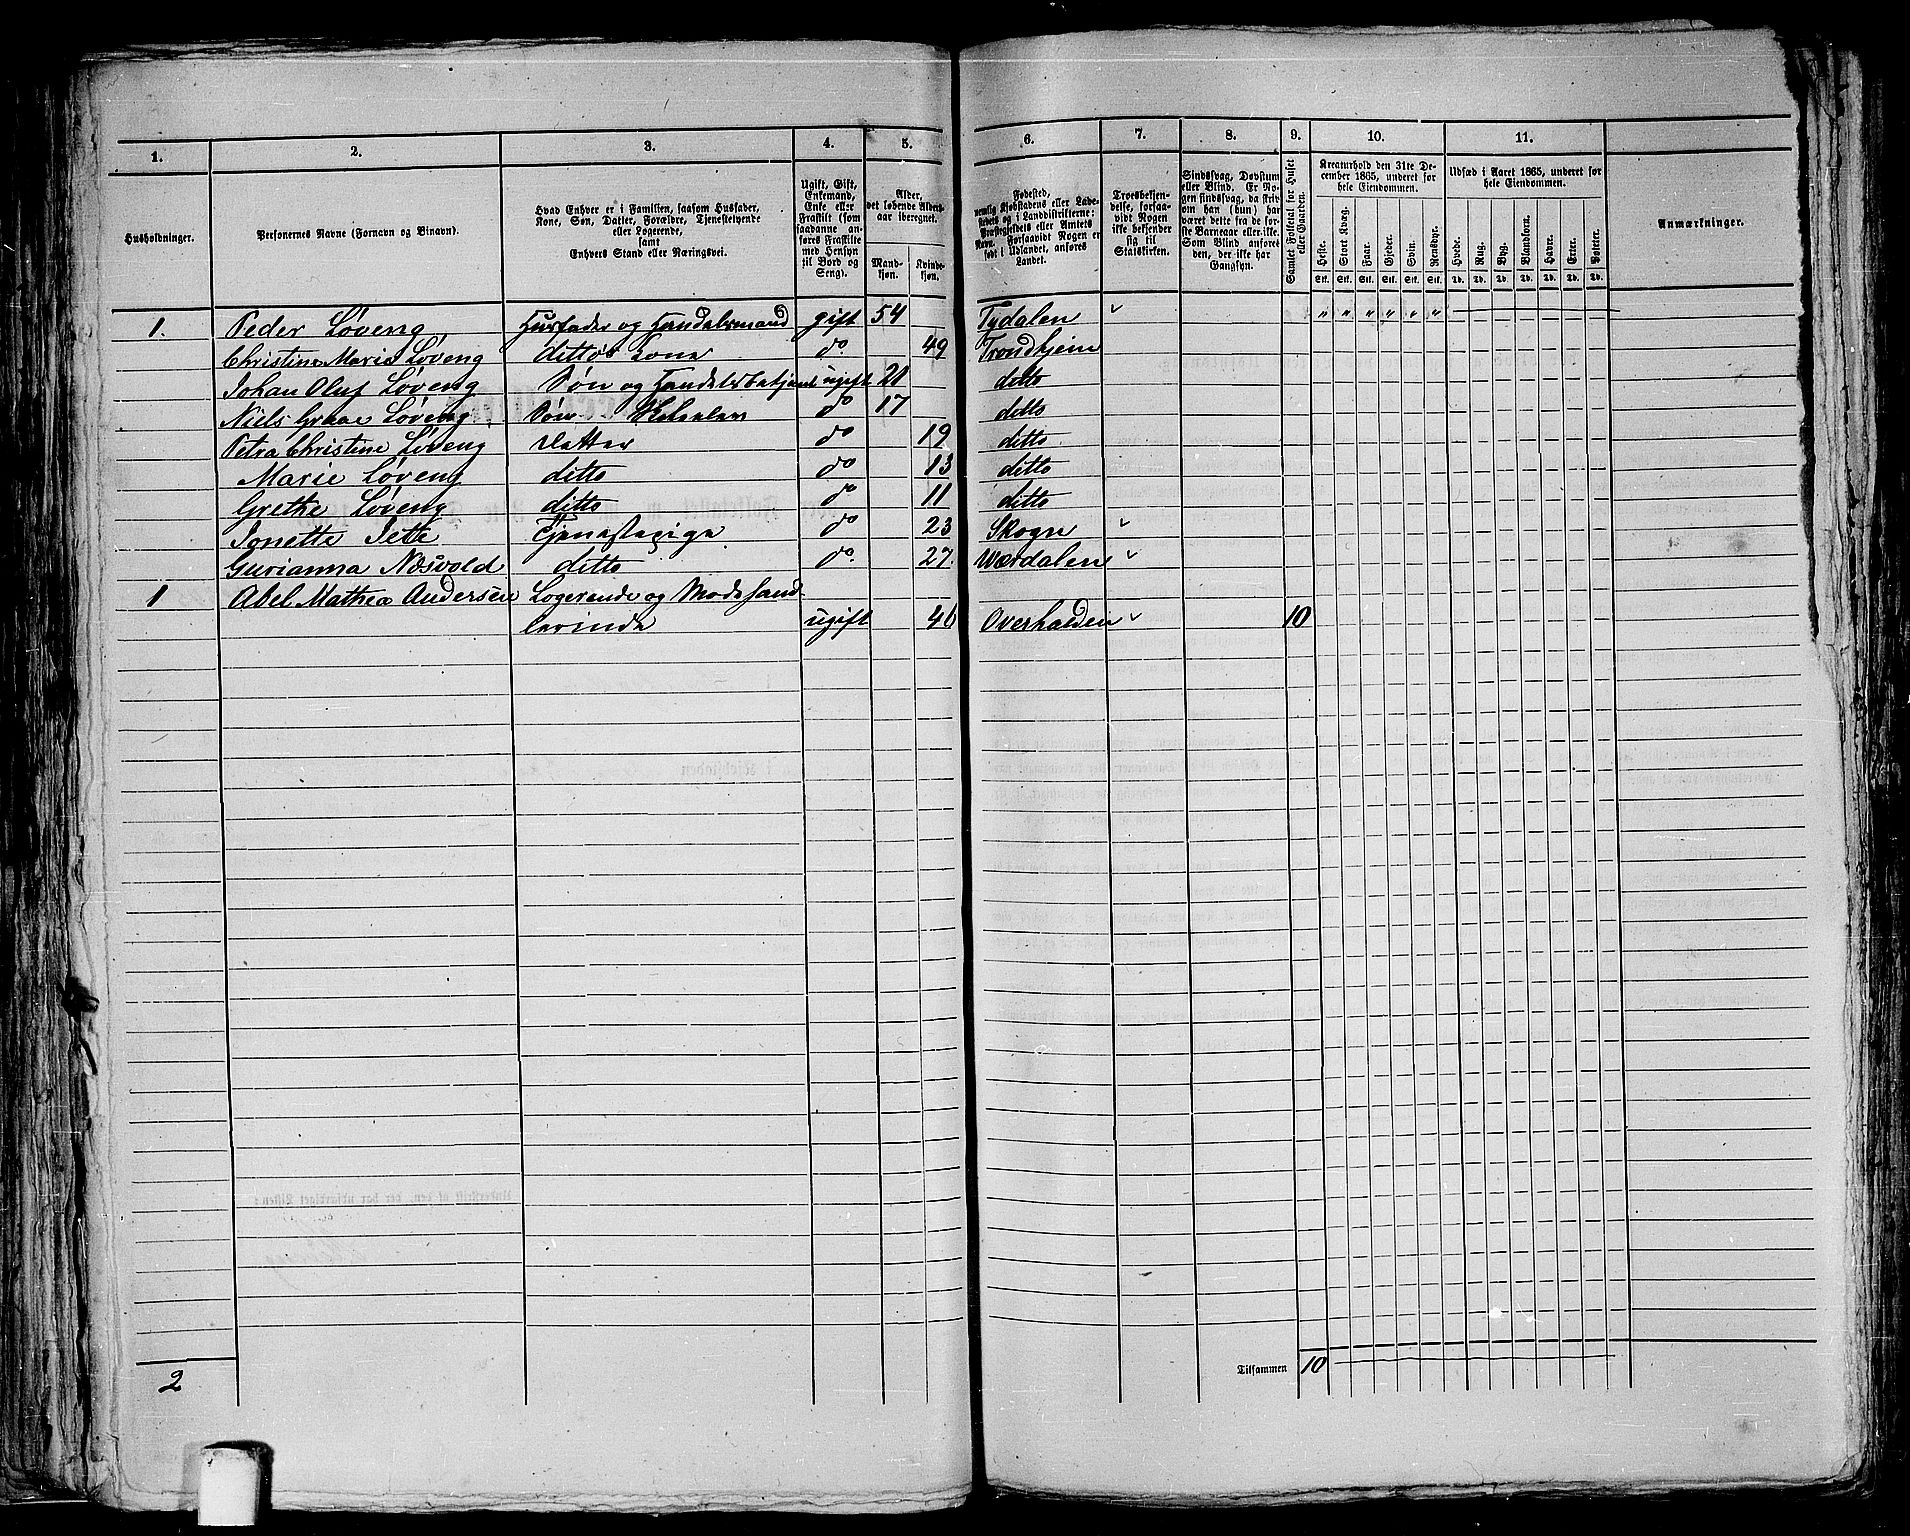 1. 2. 3. 4. 5. 6. 7. 8. 9. 10. 11.
Husholdninger.
Personernes Navne (Fornavn og Binavn).
Hvad Enhver er i Familien, saasom Husfader,
Kone, Søn, Datter, Forældre, Tjenestetyende
eller Logerende,
samt
Enhvers Stand eller Næringsvei.
Ugift, Gift,
Enkemand,
Enke eller
Fraskilt (som
saadanne an-
føres Fraskilte
med Hensyn
til Bord og
Seng).
Alder,
det løbende Alders-
aar iberegnet.
Mand-
kjøn.
Kvinde-
kjøn.
Fødested,
nemlig Kjøbstadens eller Lade-
stedets og i Landdistrikterne:
Præstegjeldets eller Amtets
Navn. Forsaavidt Nogen er
født i Udlandet, anføres
Landet.
Troesbekjen-
delse, forsaa-
vidt Nogen
ikke bekjender
sig til
Statskirken.
Sindssvag, Døvstum
eller Blind. Er No-
gen sindssvag, da skriv
om han (hun) har
været dette fra de før-
ste Barneaar eller ikke.
Som Blind anføres
den, der ikke har
Gangsyn.
Samlet Folketal for Huset
eller Gaarden.
Kreaturhold den 31te De-
cember 1865, underet for
hele Eiendommen.
Heste. Stort Kvæg. Faar. Gjeder. Svin. Rensdyr.
Stk. Stk. Stk. Stk. Stk. Stk.
Udsæd i Aaret 1865, underet for
hele Eiendommen.
Hvede. Rug. Byg. Blandkorn. Havre. Erter. Poteter.
Td. Td. Td. Td. Td. Td. Td.
Anmærkninger.
1. Peder Løveng Husfader og Handelsmand gift 54 Tydalen " " " " " "
Christine Marie Løveng dittos Kone do. 49 Trondhjem
Johan Oluf Løveng Søn og Handelsbetjent ugift 20 ditto
Niels Graae Løveng Søn do 17 ditto
Petra Christine Løveng Datter do 19 ditto
Marie Løveng ditto do 13 ditto
Grethe Løveng ditto do 11 ditto
Jonette Jette Tjenestepige do 23 Skogn
Gurianna Næsvold ditto do. 27. Værdalen
1 Abel Mathea Andersen Logerende og Modehand
lerinde ugift 46 Overhalden 10
2
Tilsammen 10